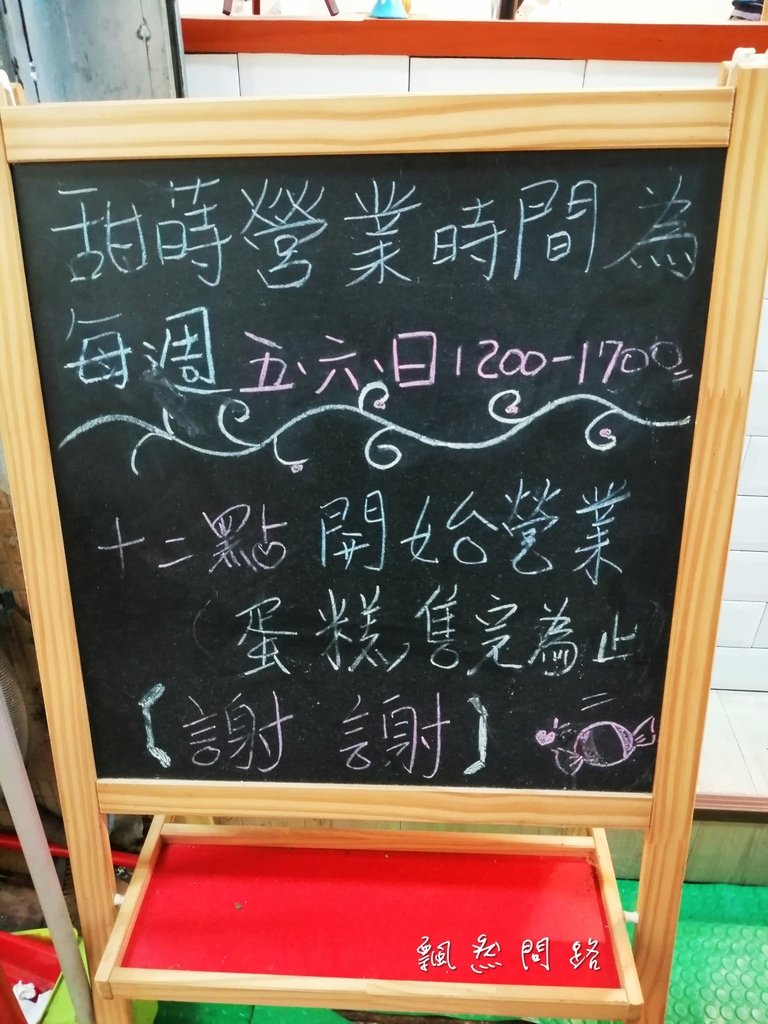 甜蒔營業時間為
每週五、六、日1200-1700
十二點開始營業
(蛋糕售完為止)
【謝謝】
飄然問路